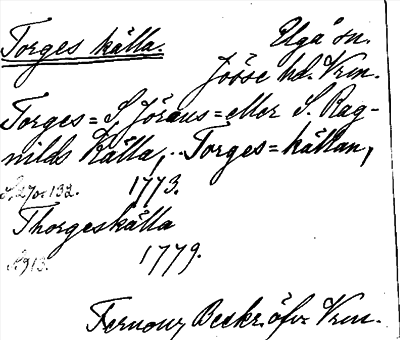 Torges källa.
Elgå sn.
Jösse hd. Vrm.
Torges= S. Jörans= eller S. Rag-
nilds Källa, .. Torges=källan,
S. 270. 132. 1773.
Thorgeskälla
S. 913. 1779.
Fernow, Beskr. öfv. Vrm.